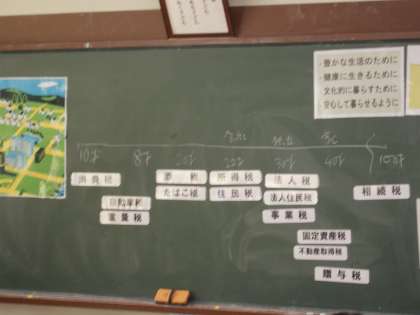 ・豊かな生活のために
・健康に生きるために
文化的に暮らすために
・安心して暮らせるように
10才
8才
20才
20才
30才
40才
消費税
酒税
所得税
法人税
相続税
自動車税
たばこ税
住民税
法人住民税
重量税
事業税
固定資産税
不動産取得税
贈与税